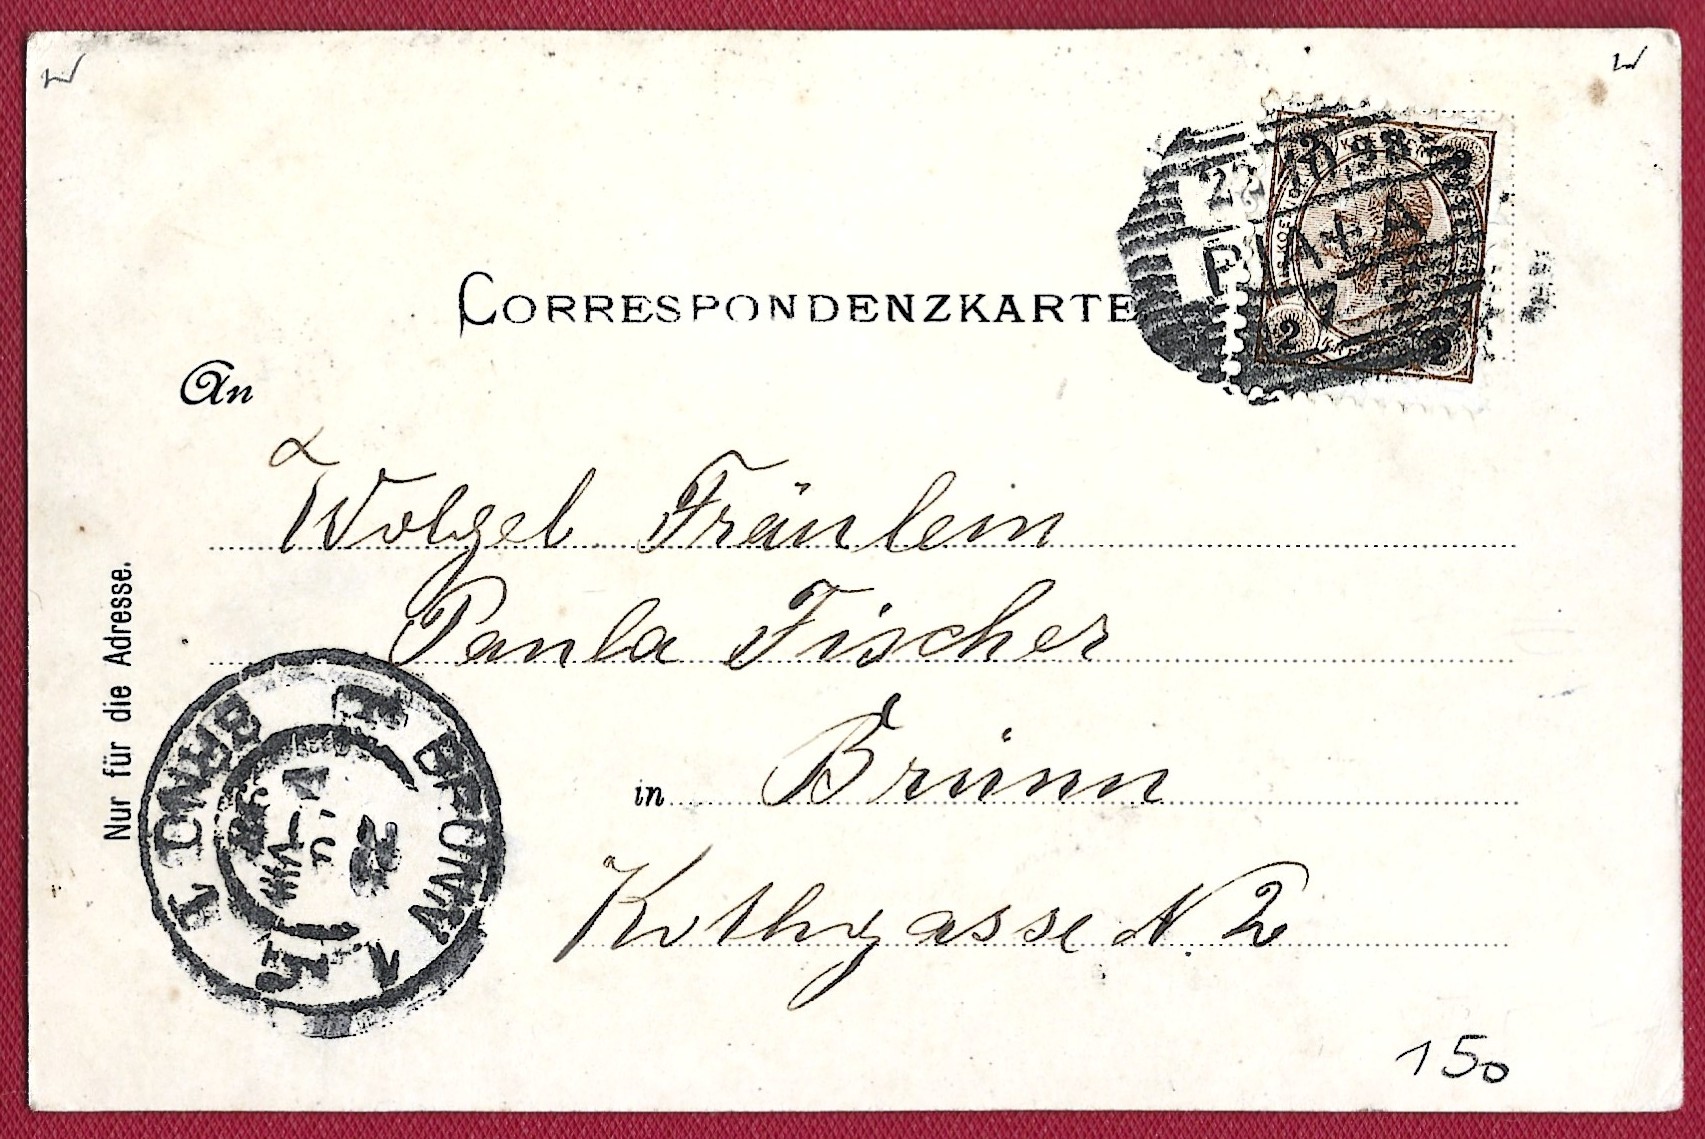 CORRESPONDENZKARTE
98
2 2
2 2
An
Wolgeb. Fräulein
Paula Fischer
in Brünn
Kothgasse N 2
Nur für die Adresse.
BRÜNN 1
BRNO 1
22
150